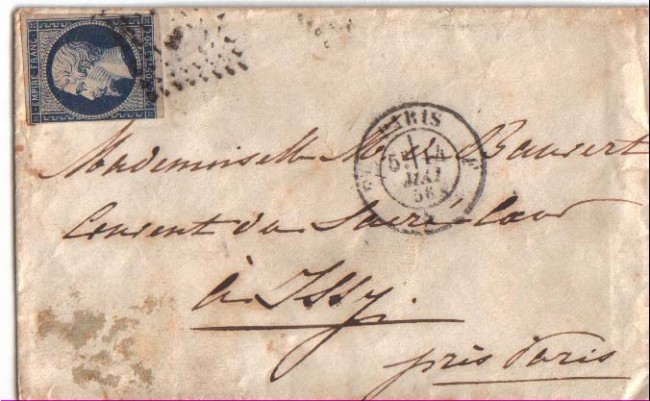 EMPIRE FRANC
PARIS
MAI
56
Mademoiselle M
Couvent du Sacré Cœur
à Issy.
près Paris